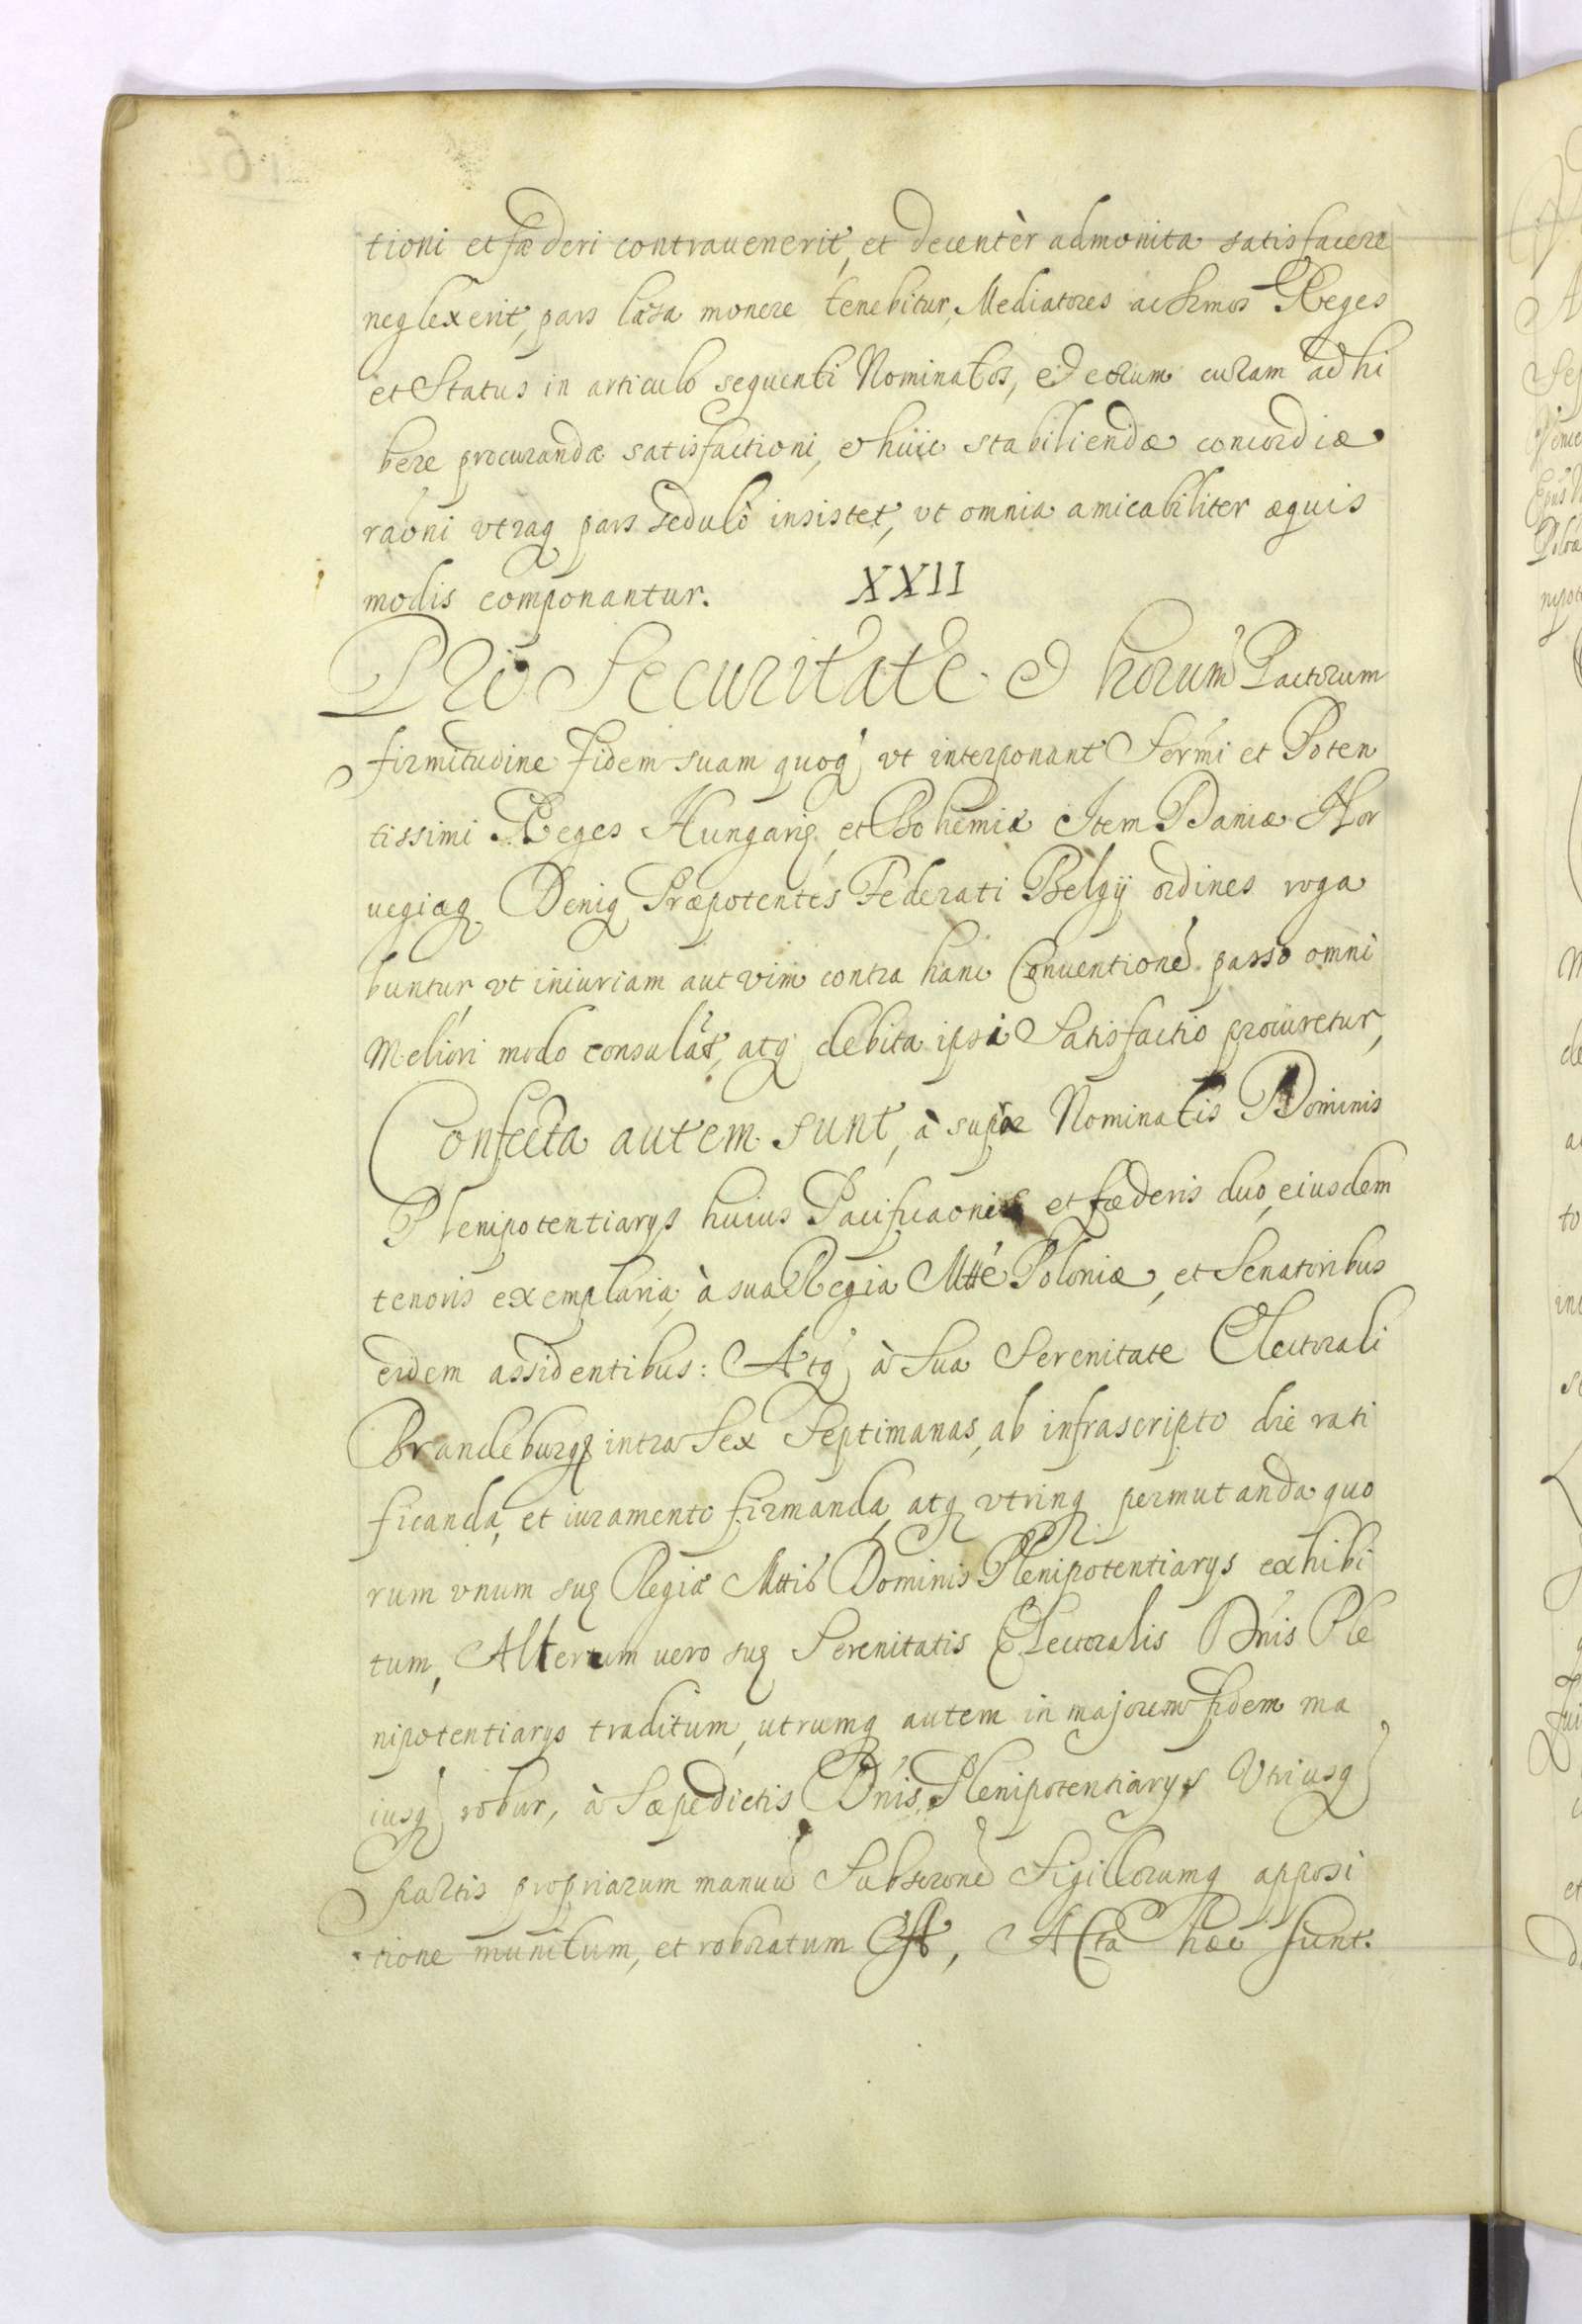 tioni et fæderi contrauenerit, et decentèr admonita satisfacere
neglexerit, pars læsa monere tenebitur, Mediatores ac Srmos Reges
et Status in articulo sequenti Nominatos, et eorum curam adhi
bere procurandæ satisfactioni, et huic stabiliendæ concordiæ
raoni vtraq pars sedulò insistet, vt omnia amicabiliter æquis
modis componantur. XXII
Pro Securitate et horum Pactorum
firmitudine fidem suam quoq vt interponant Sermi et Poten
tissimi Reges Hungarię et Bohemiæ Item Daniæ Nor
uegiæq Deniq Præpotentes Federati Belgij ordines roga
buntur vt iniuriam aut vim contra hanc Conuentione passo omni
Meliori modo consulāt, atq debita ipsi Satisfactio procuretur,
Confecta autem sunt, à supra Nominatis Dominis
Plenipotentiarys huius Pacificaonis et fæderis duo, eiusdem
tenoris exemplaria, à sua Regia Mtte Poloniæ, et Senatoribus
eidem assidentibus: Atq à Sua Serenitate Electorali
Brandeburgę intra Sex Septimanas, ab infrascripto die rati
ficanda, et iuramento firmanda, atq vtrinq permutanda quo
rum vnum suę Regiæ Mttis Dominis Plenipotentiarys exhibi
tum, Alterum vero suę Serenitatis Electoralis Dnis Ple
nipotentiarys traditum, utrumq autem in majorem fidem ma
iusq robur, à Sæpedictis Dnis Plenipotentiarys Vtriusq
partis propriarum manuu Subscrone Sigillorumq apposi
tione munitum, et roboratum Est, Acta hæc sunt.